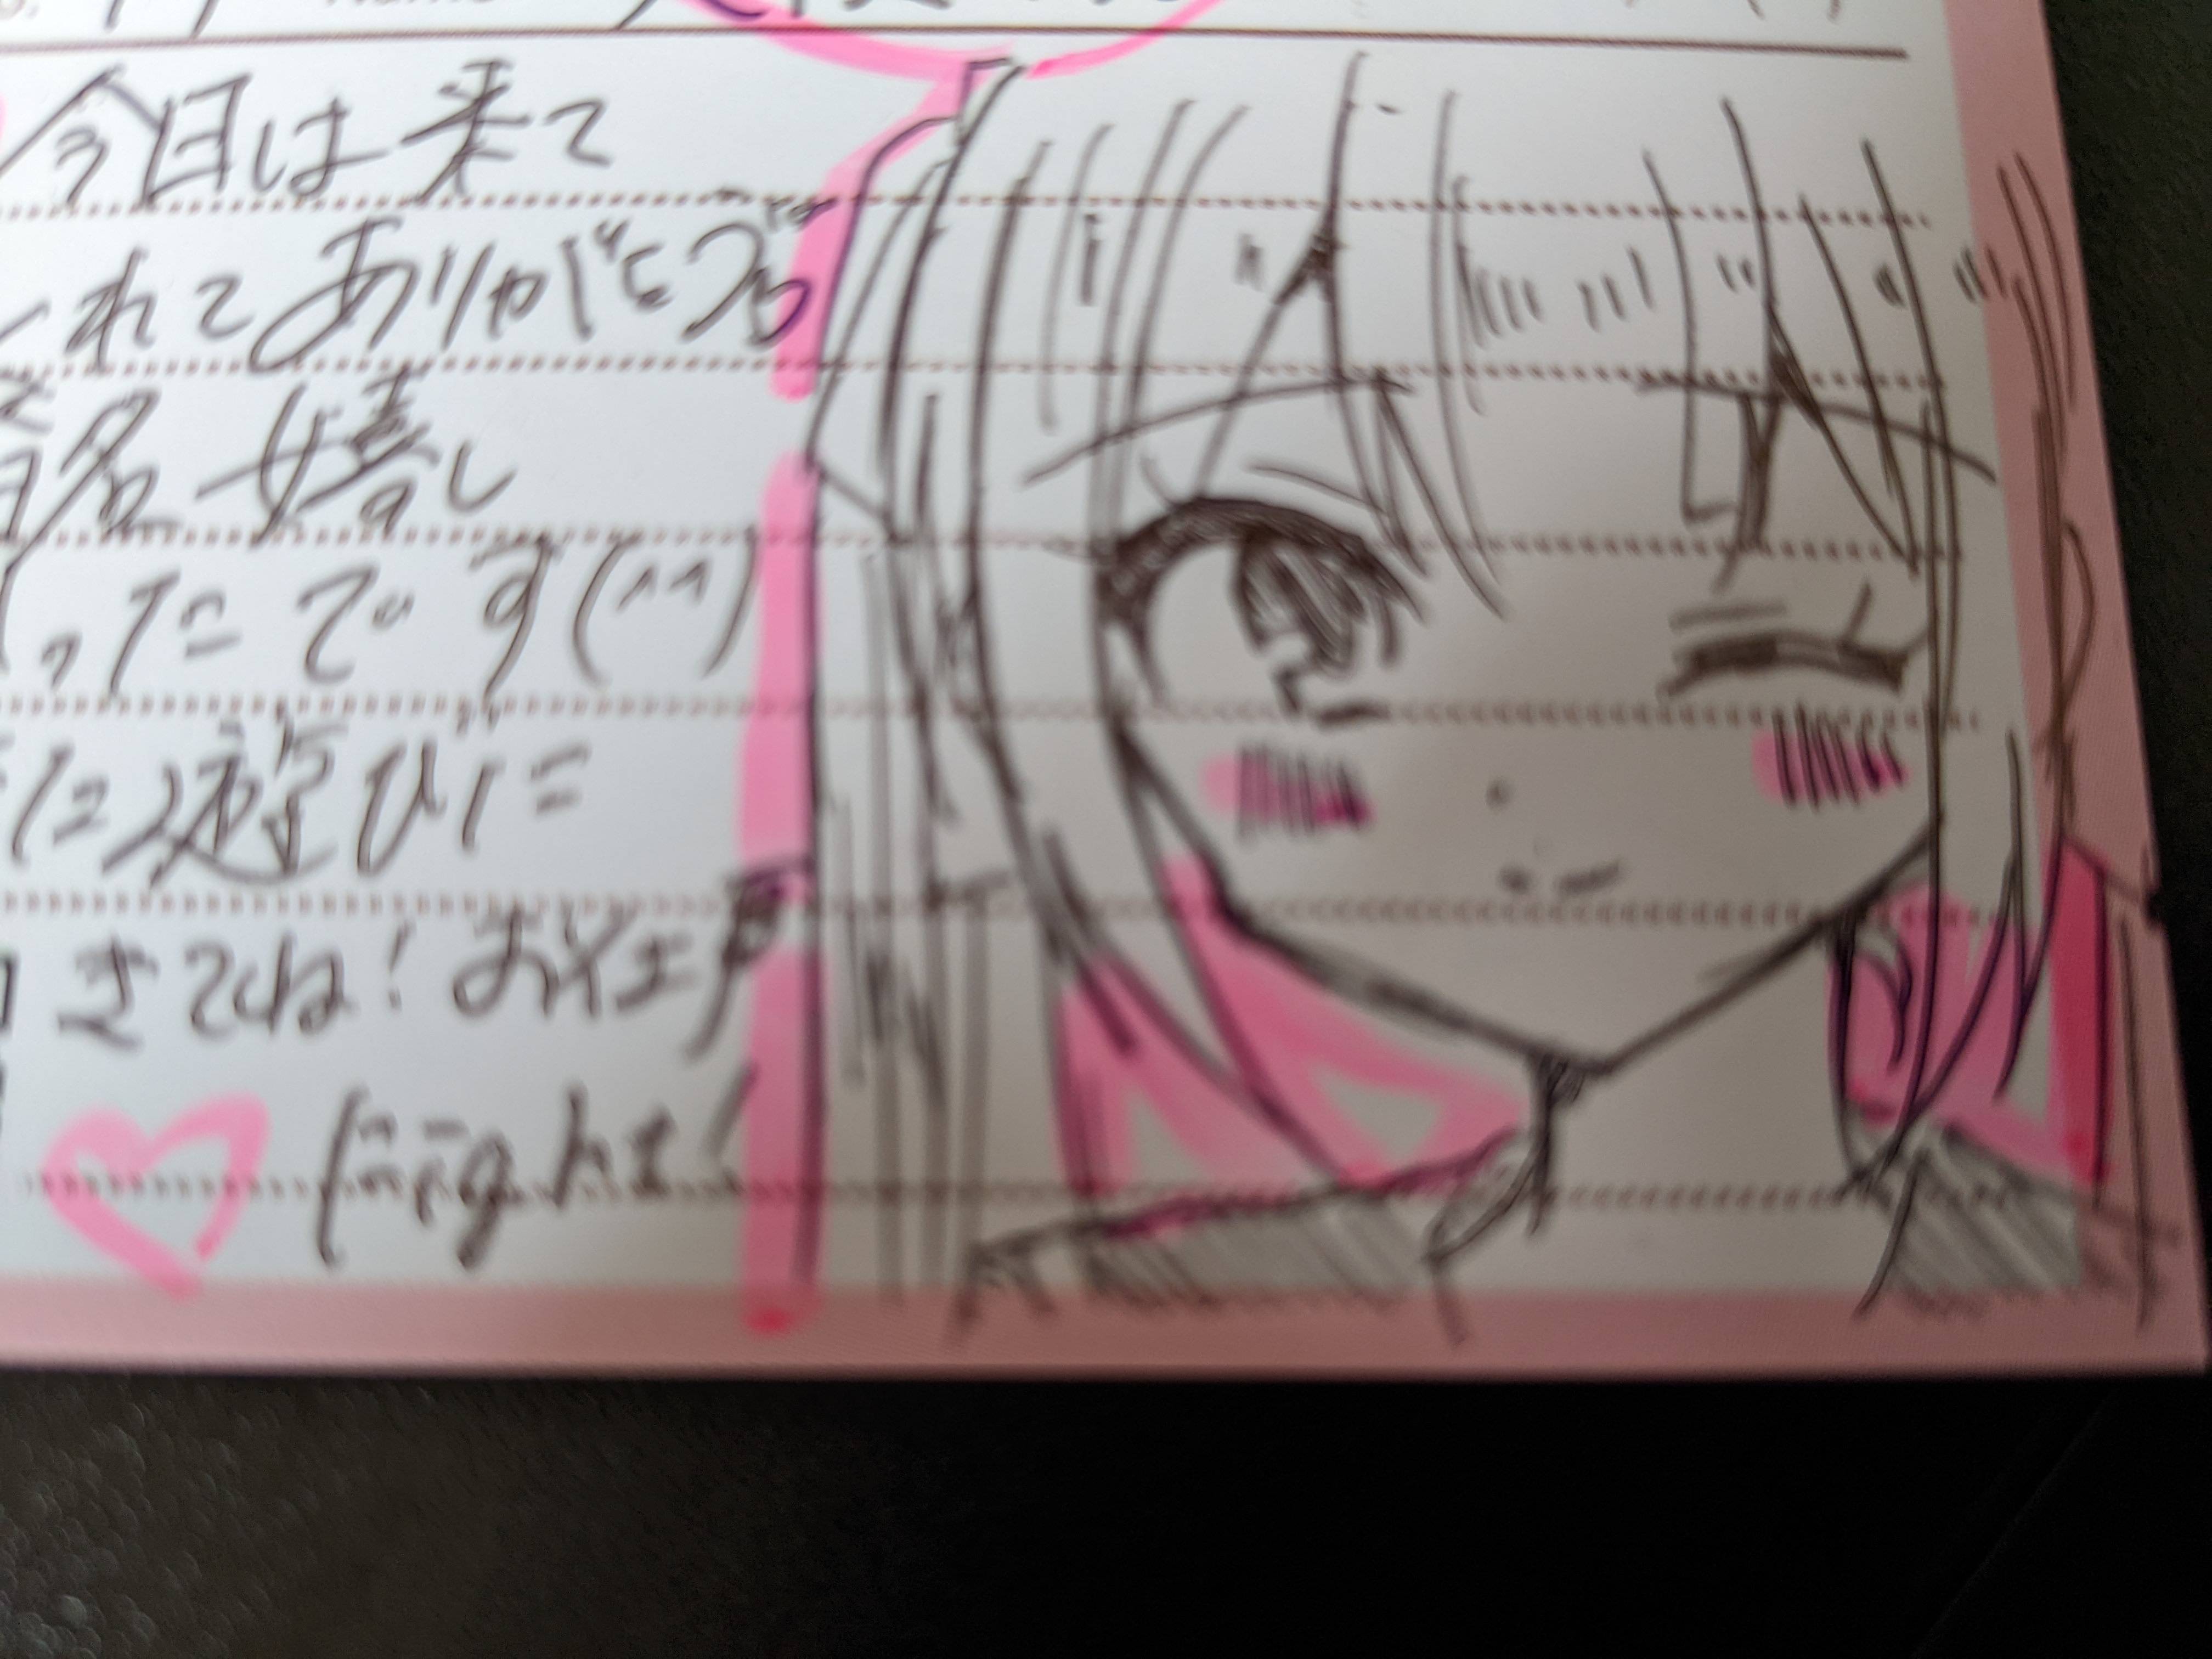 今日は来て
くれてありがとう
嬉し
かったです(^^)
に遊びに
きてね！お仕事
fight!